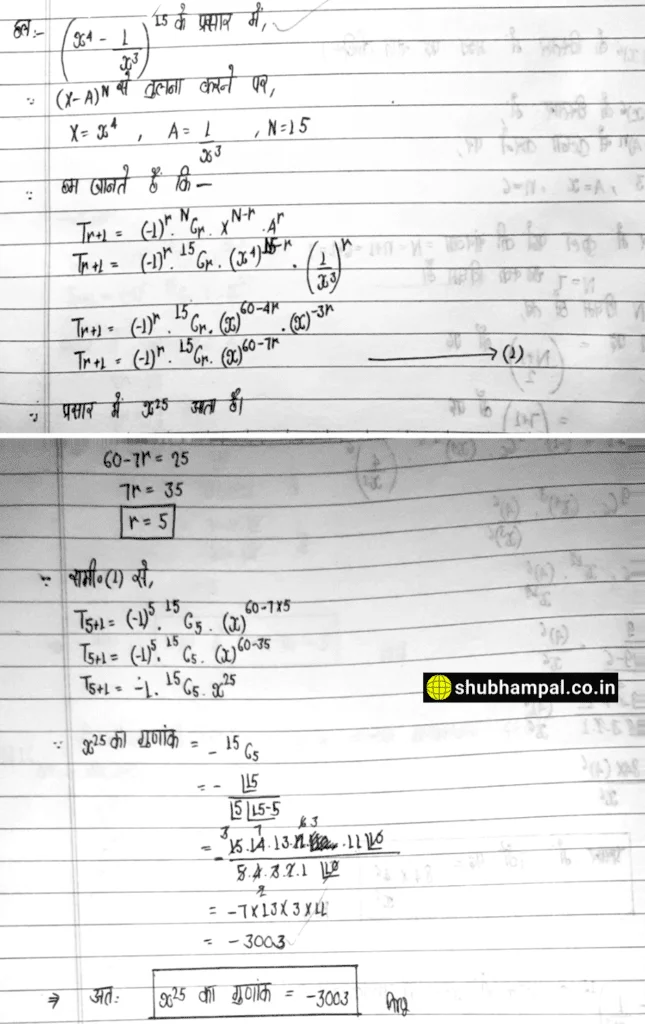 हल:- (x⁴ - 1/x³)¹⁵ के प्रसार में,
∵ (X-A)ᴺ से तुलना करने पर,
X = x⁴ , A = 1/x³ , N=15
∵ हम जानते हैं कि—
Tr+1 = (-1)ʳ. ᴺCr. Xᴺ⁻ʳ .Aʳ
Tr+1 = (-1)ʳ. ¹⁵Cr. (x⁴)¹⁵⁻ʳ . (1/x³)ʳ
Tr+1 = (-1)ʳ. ¹⁵Cr. (x)⁶⁰⁻⁴ʳ .(x)⁻³ʳ
Tr+1 = (-1)ʳ. ¹⁵Cr. (x)⁶⁰⁻⁷ʳ ⟶ (1)
∵ प्रसार में x²⁵ आता है।
60-7r = 25
7r = 35
r = 5
∵ समी०(1) से,
T5+1 = (-1)⁵. ¹⁵C5. (x)⁶⁰⁻⁷ˣ⁵
T5+1 = (-1)⁵. ¹⁵C5. (x)⁶⁰⁻³⁵
T5+1 = -1. ¹⁵C5. x²⁵
shubhampal.co.in
∵ x²⁵ का गुणांक = - ¹⁵C5
= - |15 / |5 |15-5
= - 15.14.13.12.11 |10 / 5.4.3.2.1 |10
= -7×13×3×11
= -3003
⇒ अतः x²⁵ का गुणांक = -3003